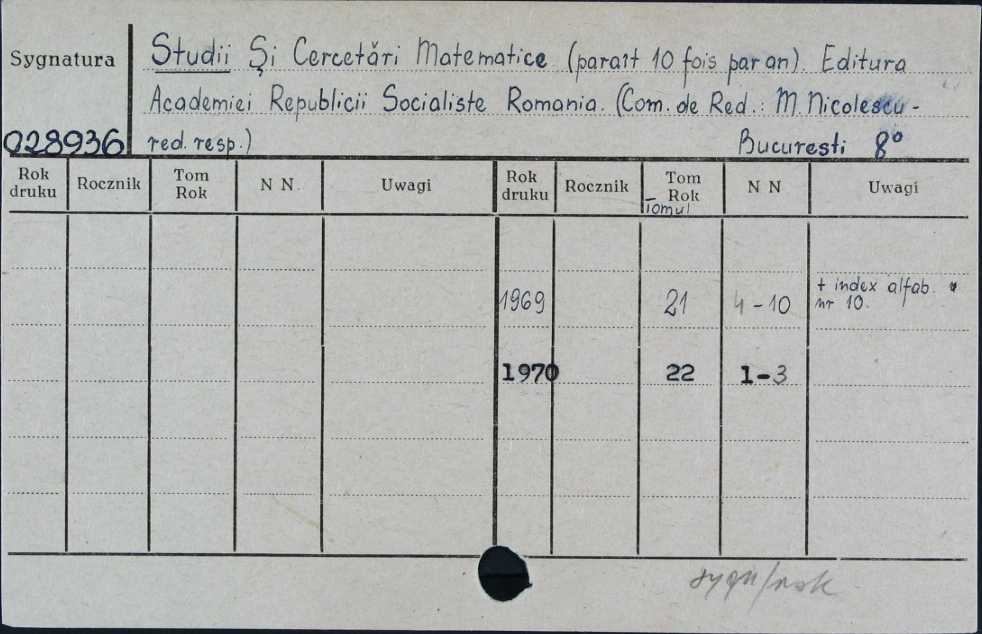 Sygnatura
Studii Şi Cercetări Matematice (paraît 10 fois par an). Editura
Academiei Republicii Socialiste Romania. (Com. de Red.: M. Nicolescu -
028936 red. resp.) Bucureşti 8°
Rok druku Rocznik Tom Rok N N. Uwagi Rok druku Rocznik Tom Rok Tomul N N Uwagi
1969 21 4-10 + index alfab.
nr 10.
1970 22 1-3
sygn/rok